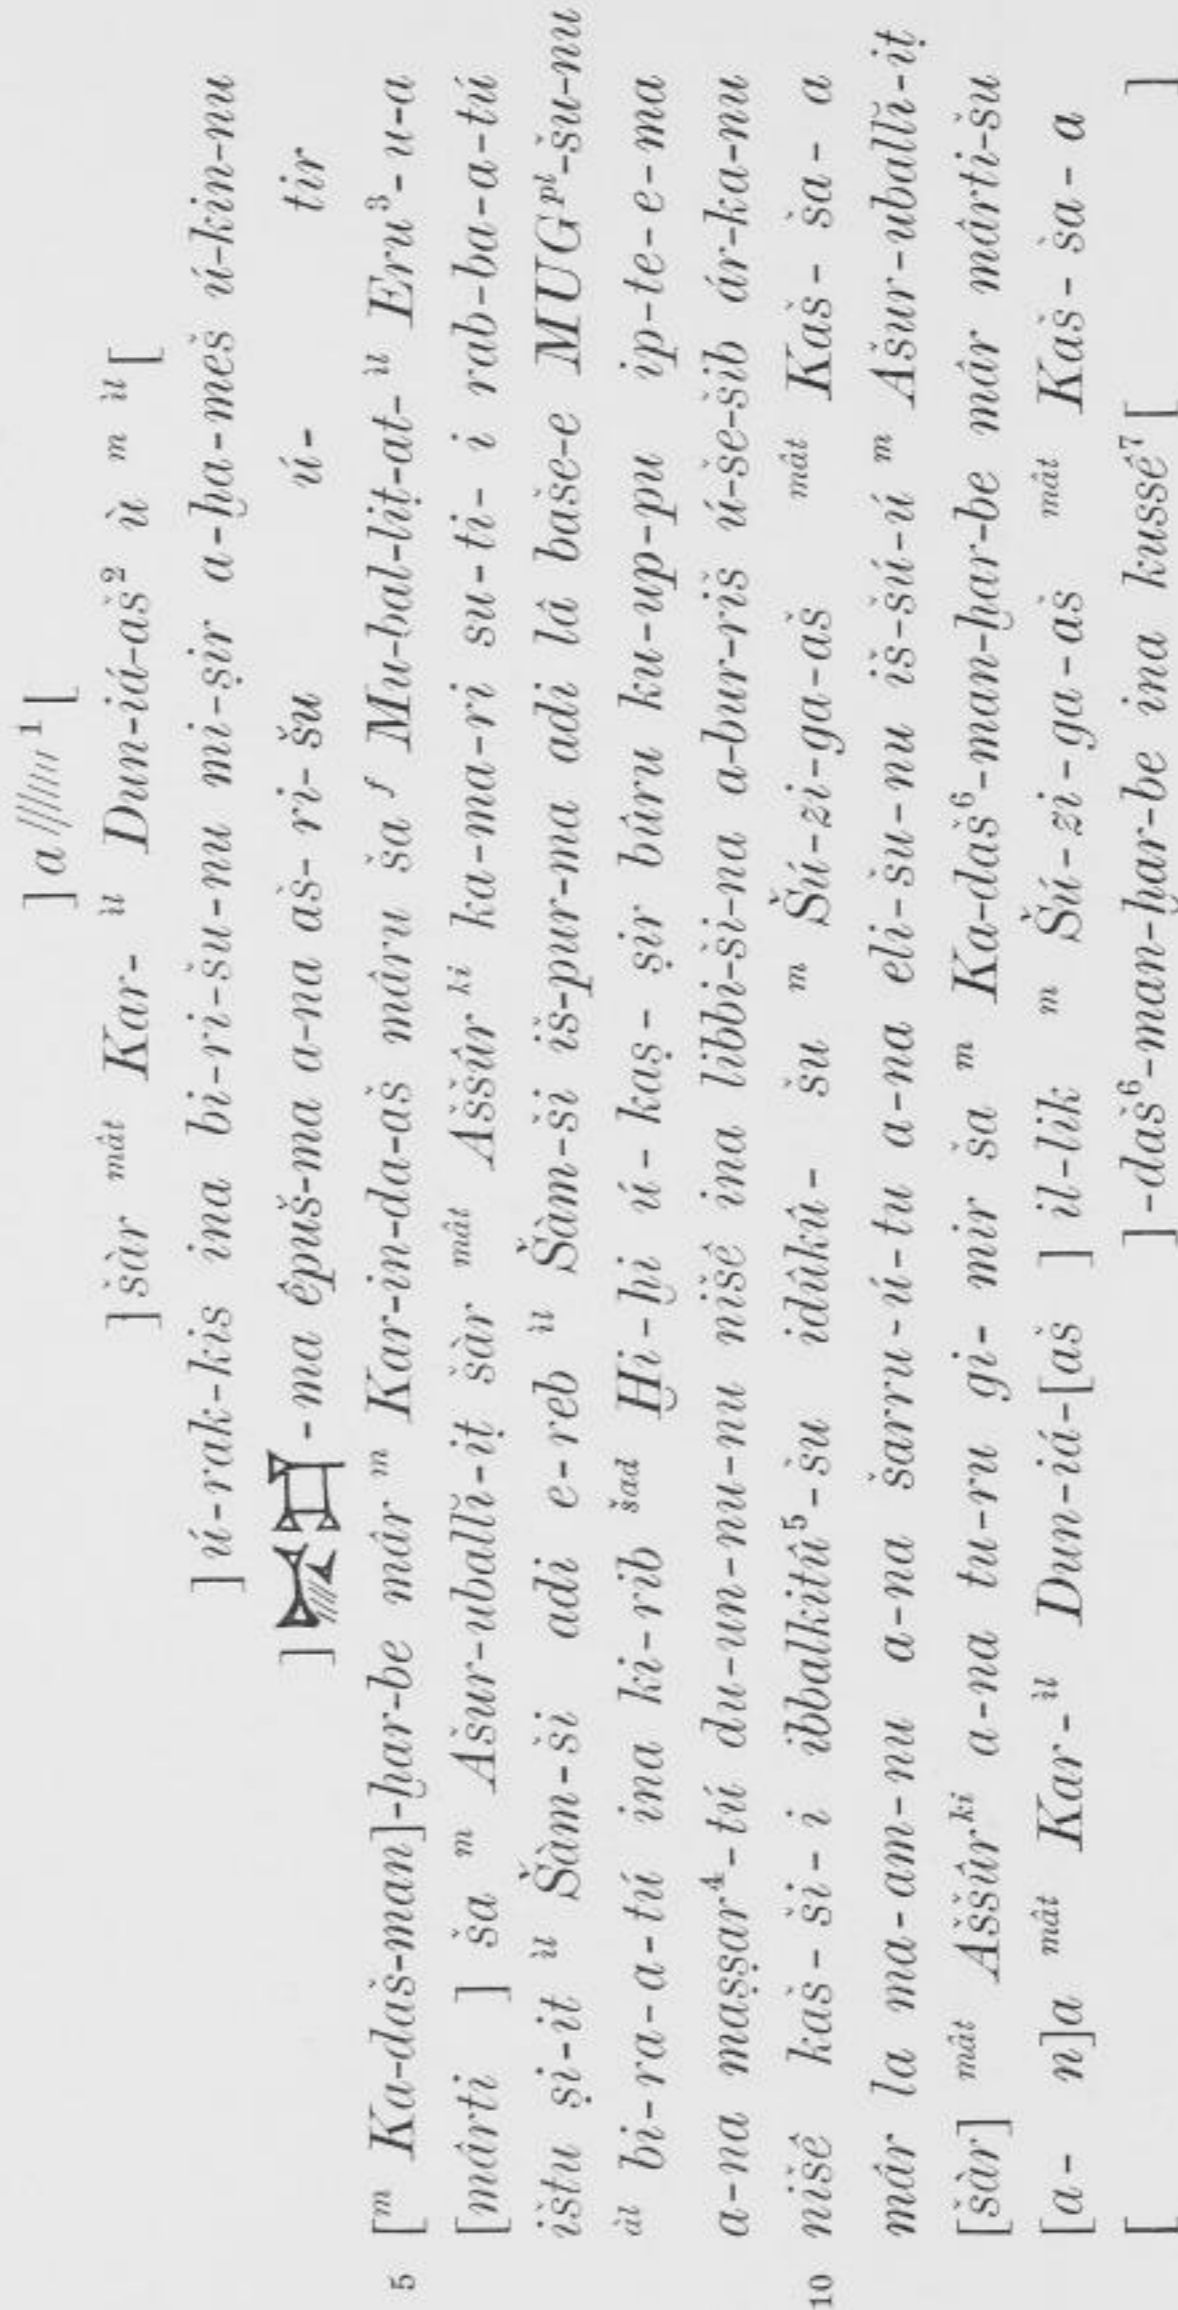 ] a ///// ¹ [
] šàr ᵐᵃ̂ᵗ Kar- ⁱ̀ˡ Dun-iá-aš² ù ᵐ ⁱ̀ˡ [
] ú-rak-kis ina bi-ri-šu-nu mi-ṣir a-ḫa-meš ú-kin-nu
] -ma êpuš-ma a-na aš- ri- šu ú- tir
5 [ᵐ Ka-daš-man]-ḫar-be mâr ᵐ Kar-in-da-aš mâru ša ᶠ Mu-bal-liṭ-at- ⁱ̀ˡ Eru³-u-a
[mârti ] ša ᵐ Ašur-uballĭ-iṭ šàr ᵐᵃ̂ᵗ Aššûr ᵏⁱ ka-ma-ri su-ti- i rab-ba-a-tú
ištu ṣi-it ⁱ̀ˡ Šàm-ši adi e-reb ⁱ̀ˡ Šàm-ši iš-pur-ma adi lâ baše-e MUGᵖˡ-šu-nu
ᵃ̀ˡ bi-ra-a-tú ina ki-rib ˢ̌ᵃᵈ Ḫi-ḫi ú- kaṣ- ṣir bûru ku-up-pu ip-te-e-ma
a-na maṣṣar⁴-tú du-un-nu-nu nišê ina libbi-ši-na a-bur-riš ú-še-šib ár-ka-nu
10 nišê kaš-ši-i ibbalkitû⁵-šu idûkû- šu ᵐ Šú-zi-ga-aš ᵐᵃ̂ᵗ Kaš- ša- a
mâr la ma-am-nu a-na šarru-ú-tu a-na eli-šu-nu iš-šú-ú ᵐ Ašur-uballĭ-iṭ
[šàr] ᵐᵃ̂ᵗ Aššûrᵏⁱ a-na tu-ru gi- mir ša ᵐ Ka-daš⁶-man-ḫar-be mâr mârti-šu
[a- n]a ᵐᵃ̂ᵗ Kar-ⁱ̀ˡ Dun-iá-[aš ] il-lik ᵐ Šú-zi-ga-aš ᵐᵃ̂ᵗ Kaš-ša- a
[ ] -daš⁶-man-ḫar-be ina kussê⁷ [ ]